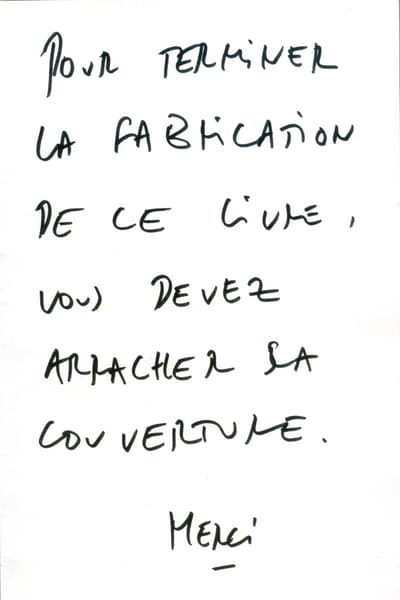 POUR TERMINER
LA FABRICATION
DE CE LIVRE,
VOUS DEVEZ
ARRACHER SA
COUVERTURE.
MERCI